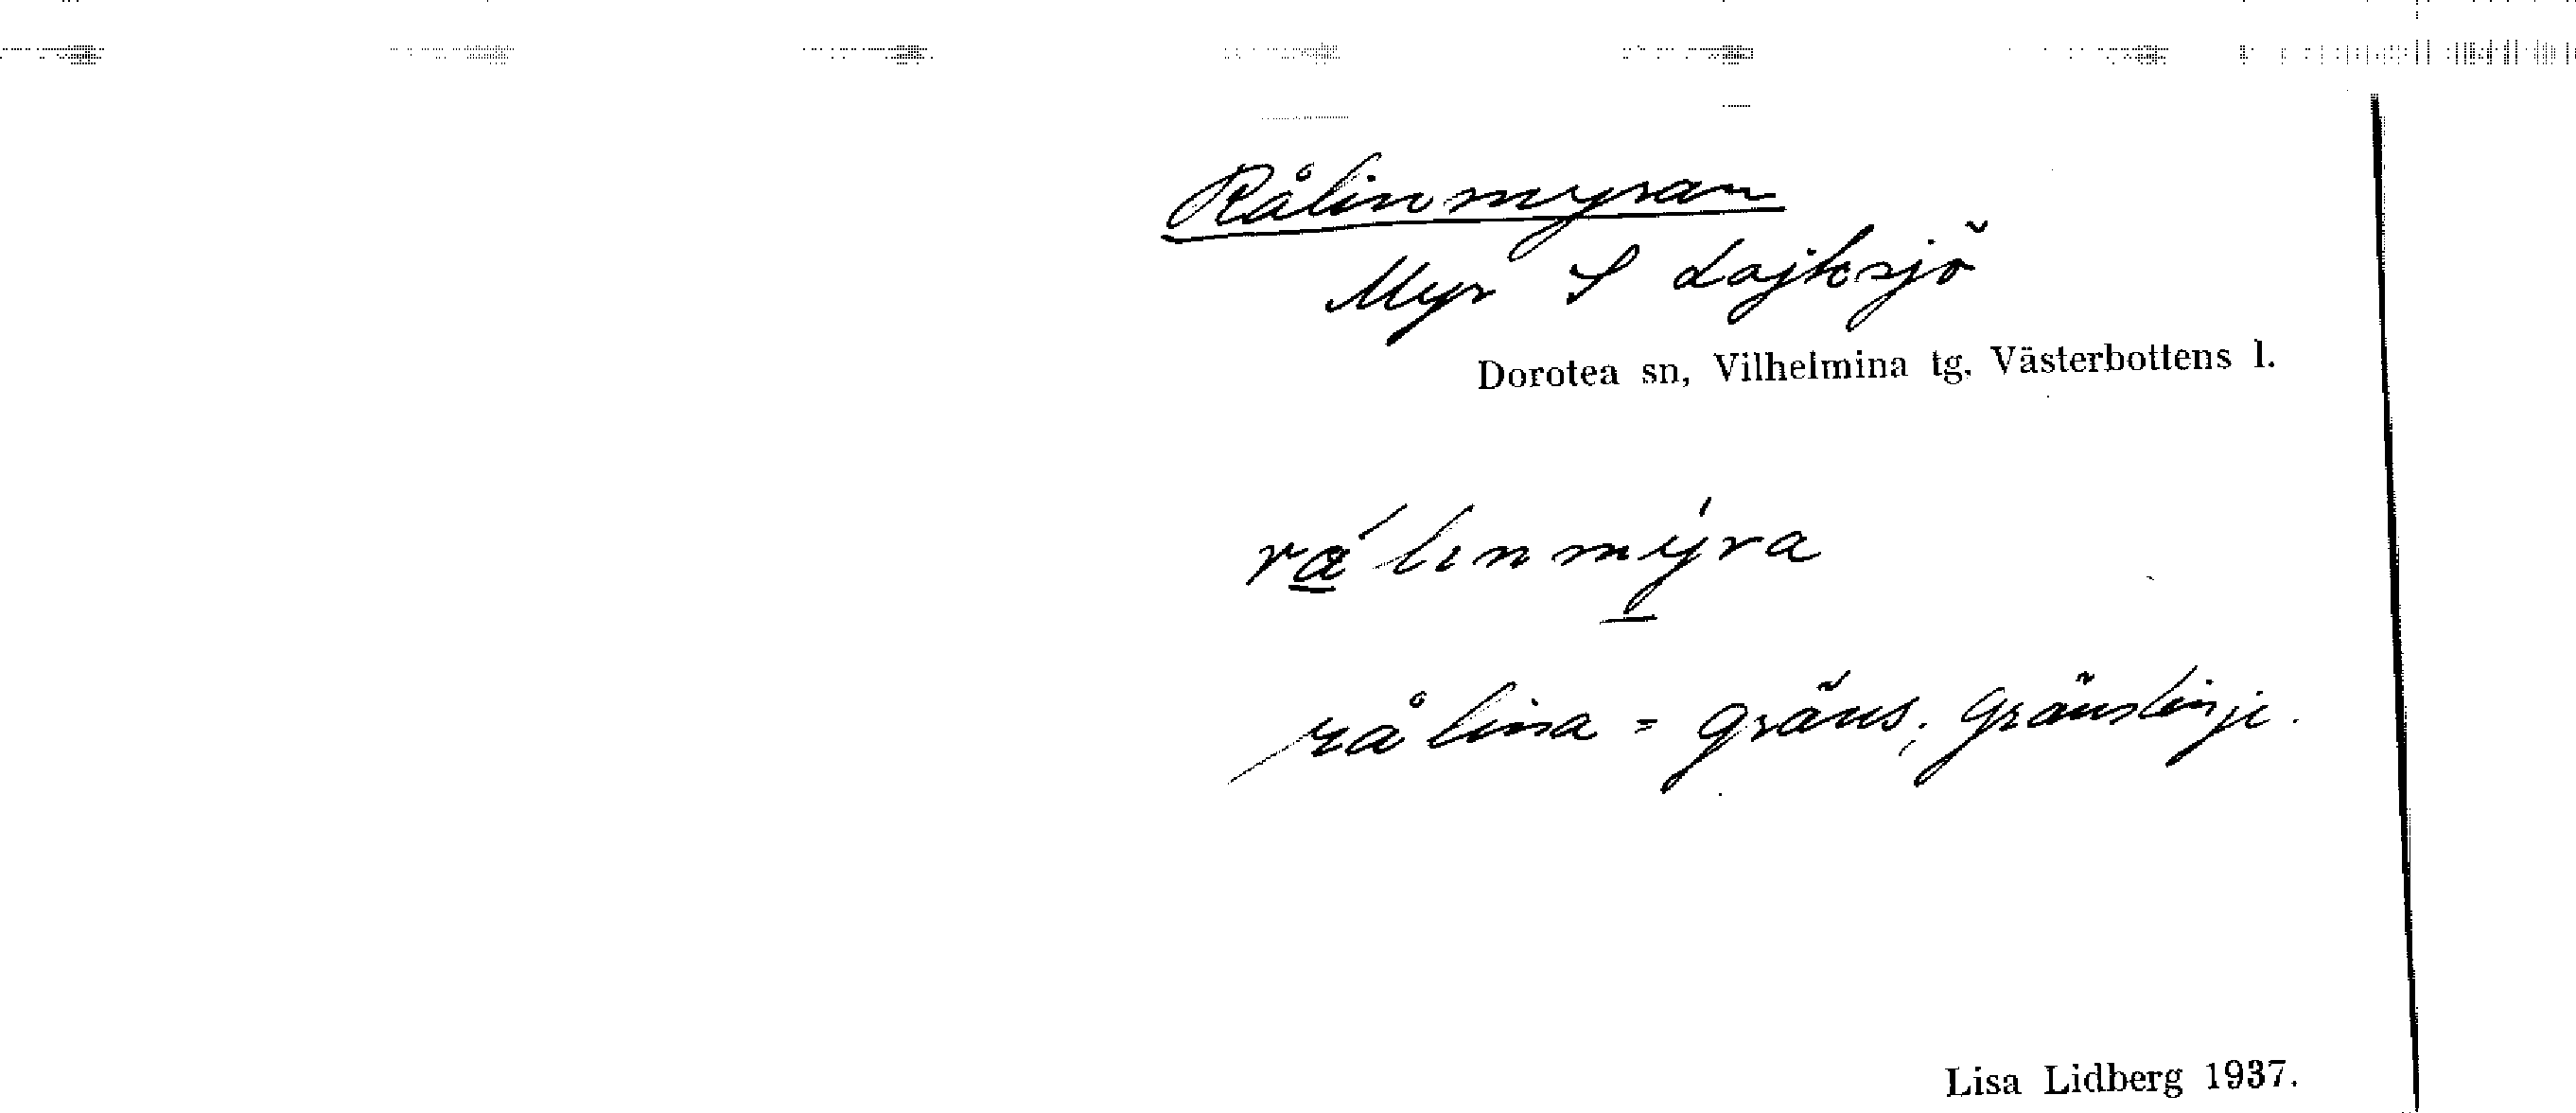 Rålinmyran
Myr S Lajksjö
Dorotea sn, Vilhelmina tg, Västerbottens l.
rá̱lɩnmý̱ra
rålina = gräns; gränslinje.
Lisa Lidberg 1937.